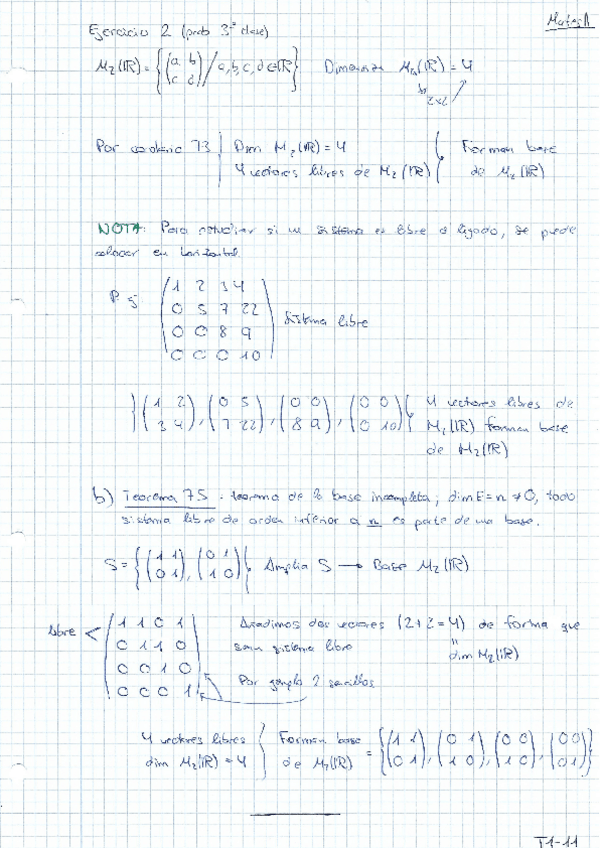 Mates II
Ejercicio 2 (prob 3ª clase)
M₂(ℝ) = {(a b / c d) / a, b, c, d ∈ ℝ} Dimensión M₂(ℝ) = 4
2x2
Por 73 | Dim M₂(ℝ) = 4 | Forman base
4 vectores libres de M₂(ℝ) | de M₂(ℝ)
NOTA: Para estudiar si un sistema es libre o ligado, se puede
colocar en horizontal.
P ej
1 2 3 4
0 5 7 22 Sistema libre
0 0 8 9
0 0 0 10
{(1 2 / 3 4), (0 5 / 7 22), (0 0 / 8 9), (0 0 / 0 10)} 4 vectores libres de
M₂(ℝ) forman base
de M₂(ℝ)
b) Teorema 75. teorema de la base incompleta; dim E = n ≠ 0, todo
sistema libre de orden inferior a n es parte de una base.
S = {(1 1 / 0 1), (0 1 / 1 0)} Amplia S → Base M₂(ℝ)
Libre <
1 1 0 1
0 1 1 0
0 0 1 0
0 0 0 1
Añadimos dos vectores (2+2=4) de forma que
sean sistema libre
"
dim M₂(ℝ)
Por ejemplo 2 sencillos
4 vectores libres } Forman base
dim M₂(ℝ) = 4 } de M₂(ℝ) = {(1 1 / 0 1), (0 1 / 1 0), (0 0 / 1 0), (0 0 / 0 1)}
T1-11